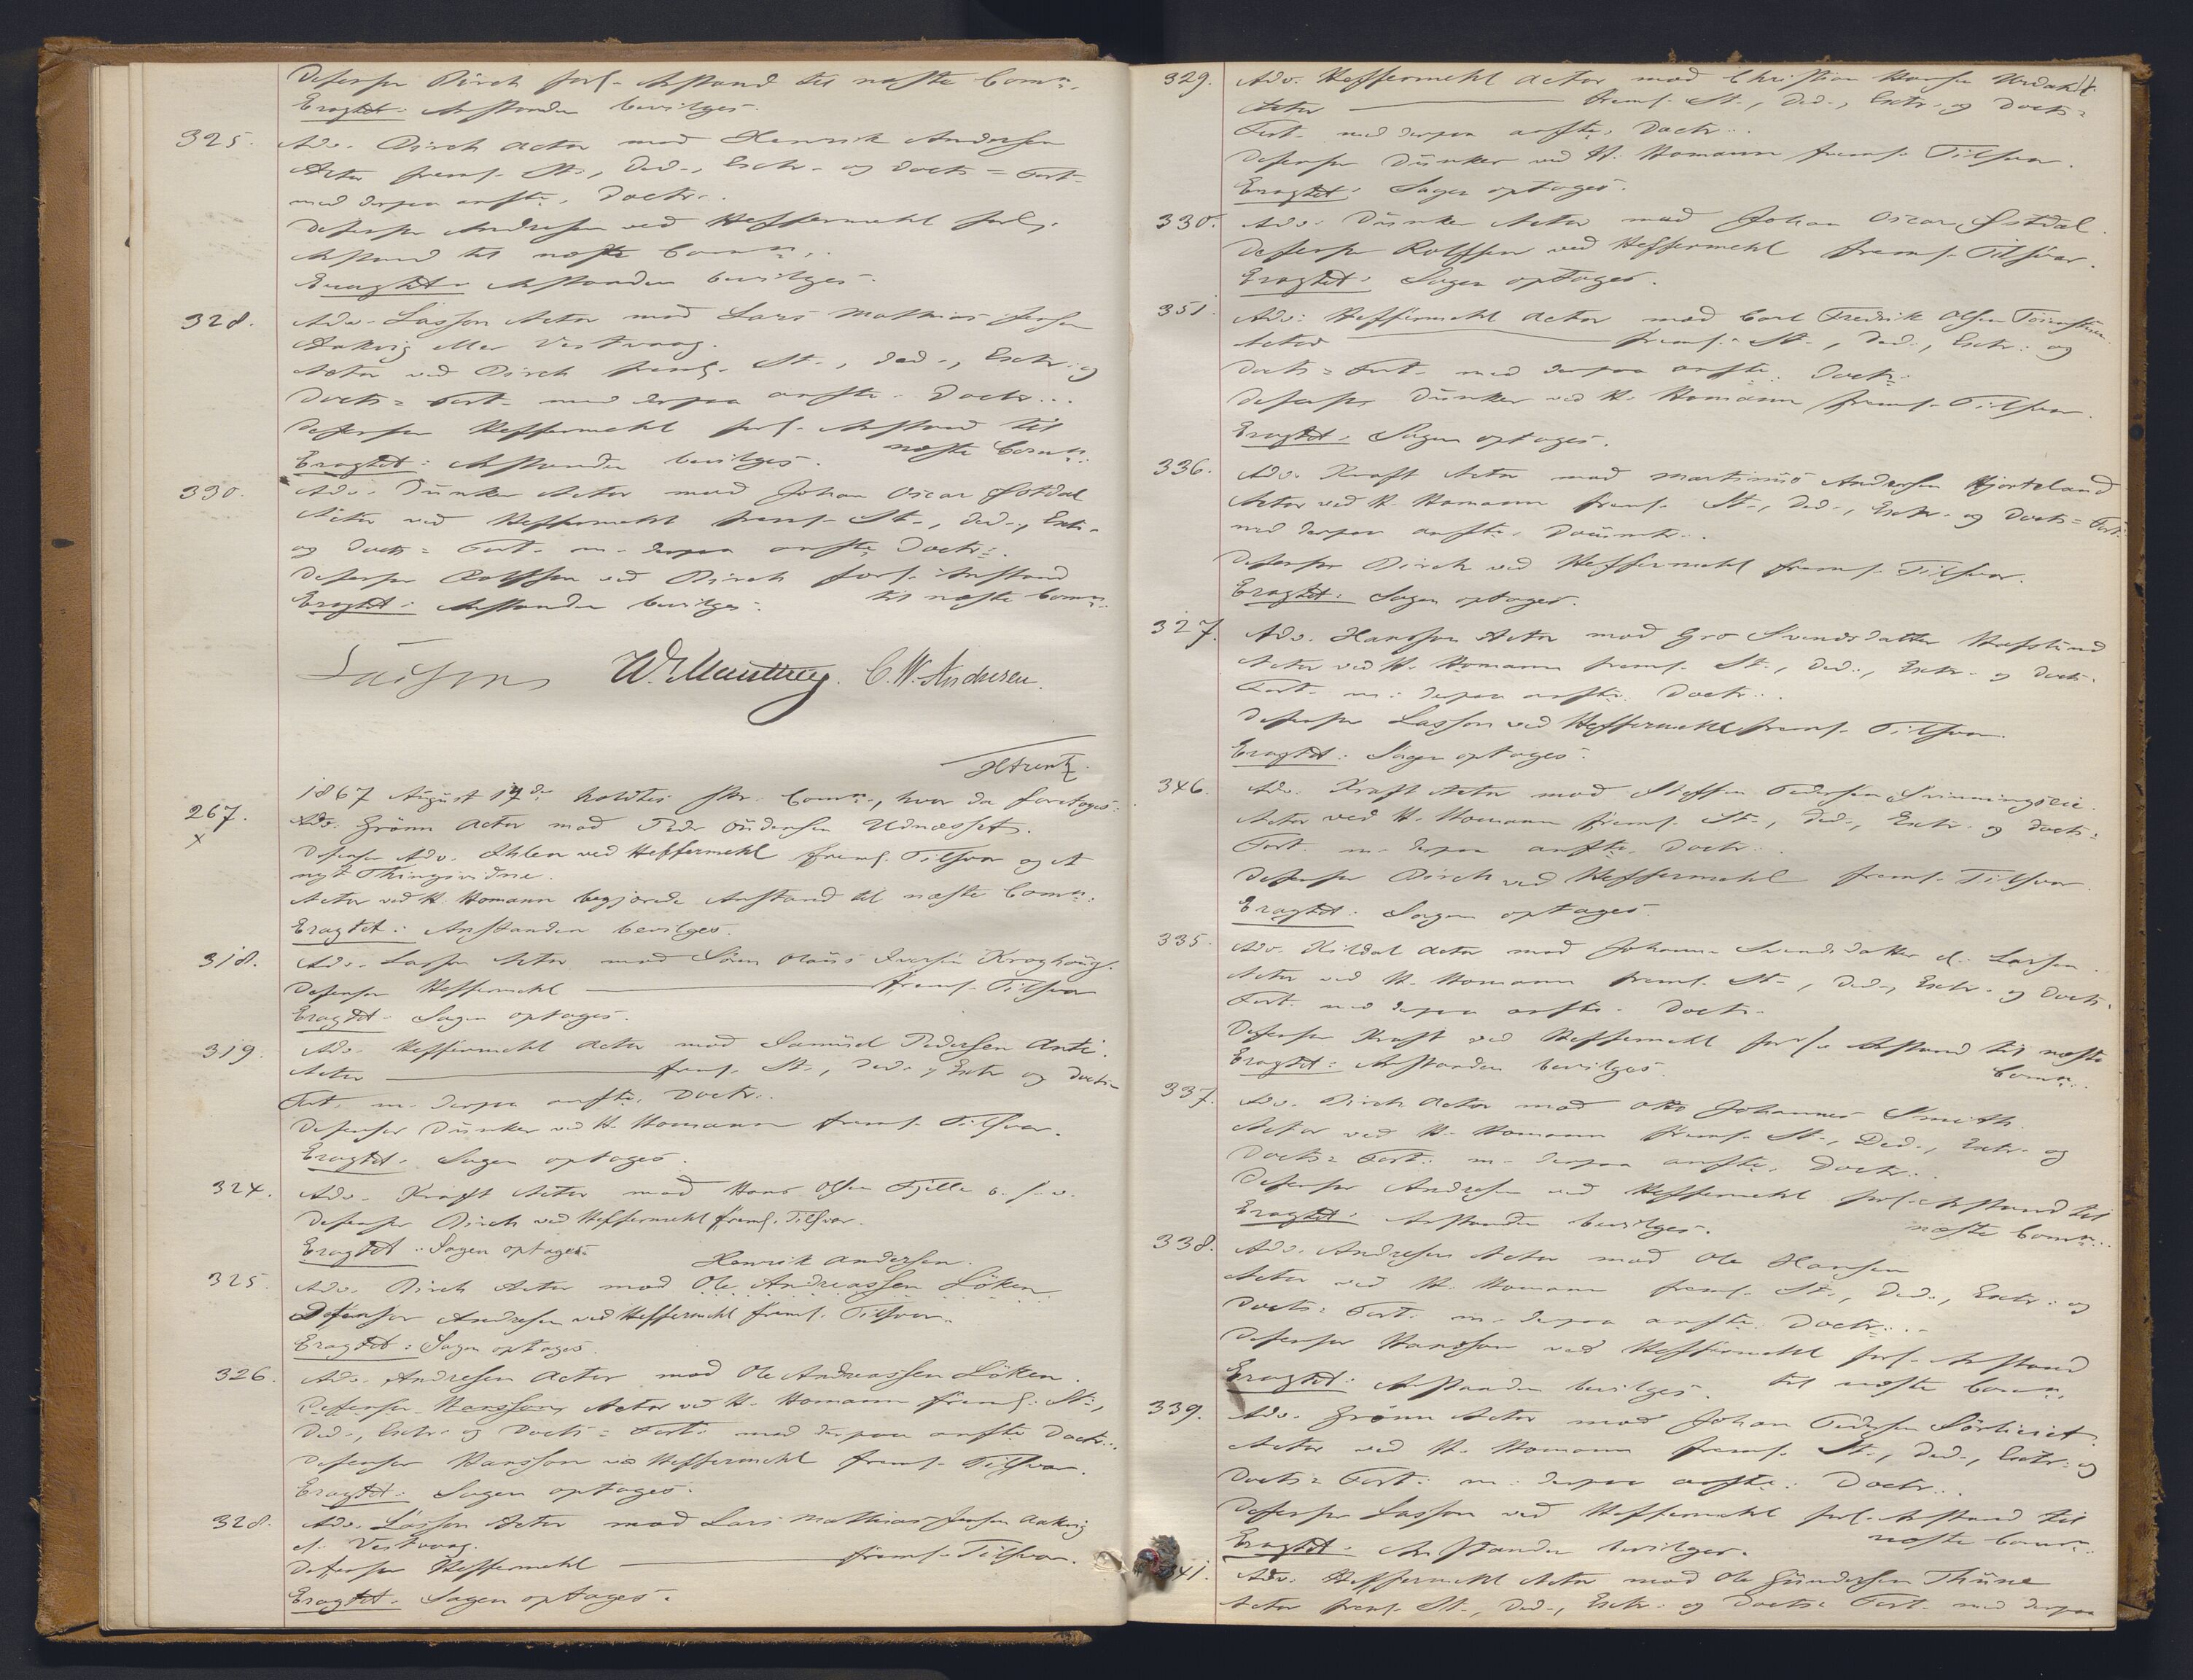 Defensor Birch forl. Anstand til næste Comn.
Eragtet: Anstanden bevilges.
325. Adv. Birch Actor mod Henrik Andersen
Actor freml. St., Ded., Extr. og Docts= Fort.
med derpaa anfte. Doctr.
Defensor Andresen ved Heffermehl forl.
Anstand til næste Comn.
Eragtet: Anstanden bevilges.
328. Adv. Lasson Actor mod Lars Mathias Jensen
Aakvig eller Vestvaag.
Actor ved Birch freml. St., Ded., Extr. og
Docts= Fort. med derpaa anfte. Doctr.
Defensor Heffermehl forl. Anstand til
næste Comn.
Eragtet: Anstanden bevilges.
330. Adv. Dünker Actor mod Johan Oscar Østdal
Actor ved Heffermehl freml. St., Ded., Extr.
og Docts= Fort. m. derpaa anfte. Doctr.
Defensor Rolffsen ved Birch forl. Anstand
til næste Comn.
Eragtet: Anstanden bevilges.
W. Manthey. C. W. Andresen.
1867 August 17de holdtes Comn., hvor da foretoges:
267. Adv. Grönn Actor mod Peder Gudensen Udnæsset.
x
Defensor Adv. Ihlen ved Heffermehl freml. Tilsvar og et
nyt Thingsvidne.
Actor ved H. Homann begjærede Anstand til næste Comn.
Eragtet: Anstanden bevilges.
318. Adv. Lasson Actor mod Sören Olaüs Iversen Kroghaug.
Defensor Heffermehl freml. Tilsvar
Eragtet: Sagen optages.
319. Adv. Heffermehl Actor mod Samüel Pedersen Anti.
Actor freml. St., Ded., Extr. og Docts=
Fort. m. derpaa anfte. Doctr.
Defensor Dünker ved H. Homann freml. Tilsvar.
Eragtet: Sagen optages.
324. Adv. Kraft Actor mod Hans Olsen Fjelle o. s. v.
Defensor Birch ved Heffermehl freml. Tilsvar.
Eragtet: Sagen optages.
Henrik Andersen.
325. Adv. Birch Actor mod Ole Andreassen Löken
Defensor Andresen ved Heffermehl freml. Tilsvar.
Eragtet: Sagen optages.
326. Adv. Andresen Actor mod Ole Andreassen Löken.
Defensor Hansson, Actor ved H. Homann freml. St.,
Ded., Extr. og Docts= Fort. med derpaa anfte Doctr.
Defensor Hansson ved Heffermehl freml. Tilsvar.
Eragtet: Sagen optages.
328. Adv. Lasson Actor mod Lars Mathias Jensen Aakvig
el. Vestvaag.
Defensor Heffermehl freml. Tilsvar.
Eragtet: Sagen optages.
329. Adv. Heffermehl Actor mod Christian Hansen Urdahl
Actor freml. St., Ded., Extr. og Docts=
Fort. med derpaa anfte. Doctr.
Defensor Dünker ved H. Homann freml. Tilsvar.
Eragtet: Sagen optages.
330. Adv. Dünker Actor mod Johan Oscar Østdal.
Defensor Rolffsen ved Heffermehl freml. Tilsvar.
Eragtet: Sagen optages.
351. Adv. Heffermehl Actor mod Carl Fredrik Olsen
Actor freml. St., Ded., Extr. og
Docts= Fort. med derpaa anfte. Doctr.
Defensor Dünker ved H. Homann freml. Tilsvar.
Eragtet: Sagen optages.
336. Adv. Kraft Actor mod Martinüs Andersen Hjorteland
Actor ved H. Homann freml. St., Ded., Extr. og Docts= Fort.
med derpaa anfte. Doctr.
Defensor Birch ved Heffermehl freml. Tilsvar.
Eragtet: Sagen optages.
327. Adv. Hansson Actor mod Gro Svendsdatter
Actor ved H. Homann freml. St., Ded., Extr. og Docts=
Fort. m. derpaa anfte. Doctr.
Defensor Lasson ved Heffermehl freml. Tilsvar.
Eragtet: Sagen optages.
346. Adv. Kraft Actor mod Steffen Pedersen Svinningseie.
Actor ved H. Homann freml. St., Ded., Extr. og Docts=
Fort. m. derpaa anfte. Doctr.
Defensor Birch ved Heffermehl freml. Tilsvar.
Eragtet: Sagen optages.
335. Adv. Hildal Actor mod Johanne Svendsdatter el. Larsen.
Actor ved H. Homann freml. St., Ded., Extr. og Docts=
Fort. med derpaa anfte. Doctr.
Defensor Kraft ved Heffermehl forl. Anstand til næste
Comn.
Eragtet: Anstanden bevilges.
337. Adv. Birch Actor mod Otto Johannes Smith.
Actor ved H. Homann freml. St., Ded., Extr. og
Docts= Fort. m. derpaa anfte. Doctr.
Defensor Andresen ved Heffermehl forl. Anstand til
næste Comn.
Eragtet: Anstanden bevilges.
338. Adv. Andresen Actor mod Ole Hansen
Actor ved H. Homann freml. St., Ded., Extr. og
Docts= Fort. m. derpaa anfte. Doctr.
Defensor Hansson ved Heffermehl forl. Anstand
til næste Comn.
Eragtet: Anstanden bevilges.
339. Adv. Grönn Actor mod Johan Pedersen Sörlieiet.
Actor ved H. Homann freml. St., Ded., Extr. og
Docts= Fort. m. derpaa anfte. Doctr.
Defensor Lasson ved Heffermehl forl. Anstand til
næste Comn.
Eragtet: Anstanden bevilges.
341. Adv. Heffermehl Actor mod Ole Gündersen Thüne
Actor freml. St., Ded., Extr. og Docts= Fort. med derpaa